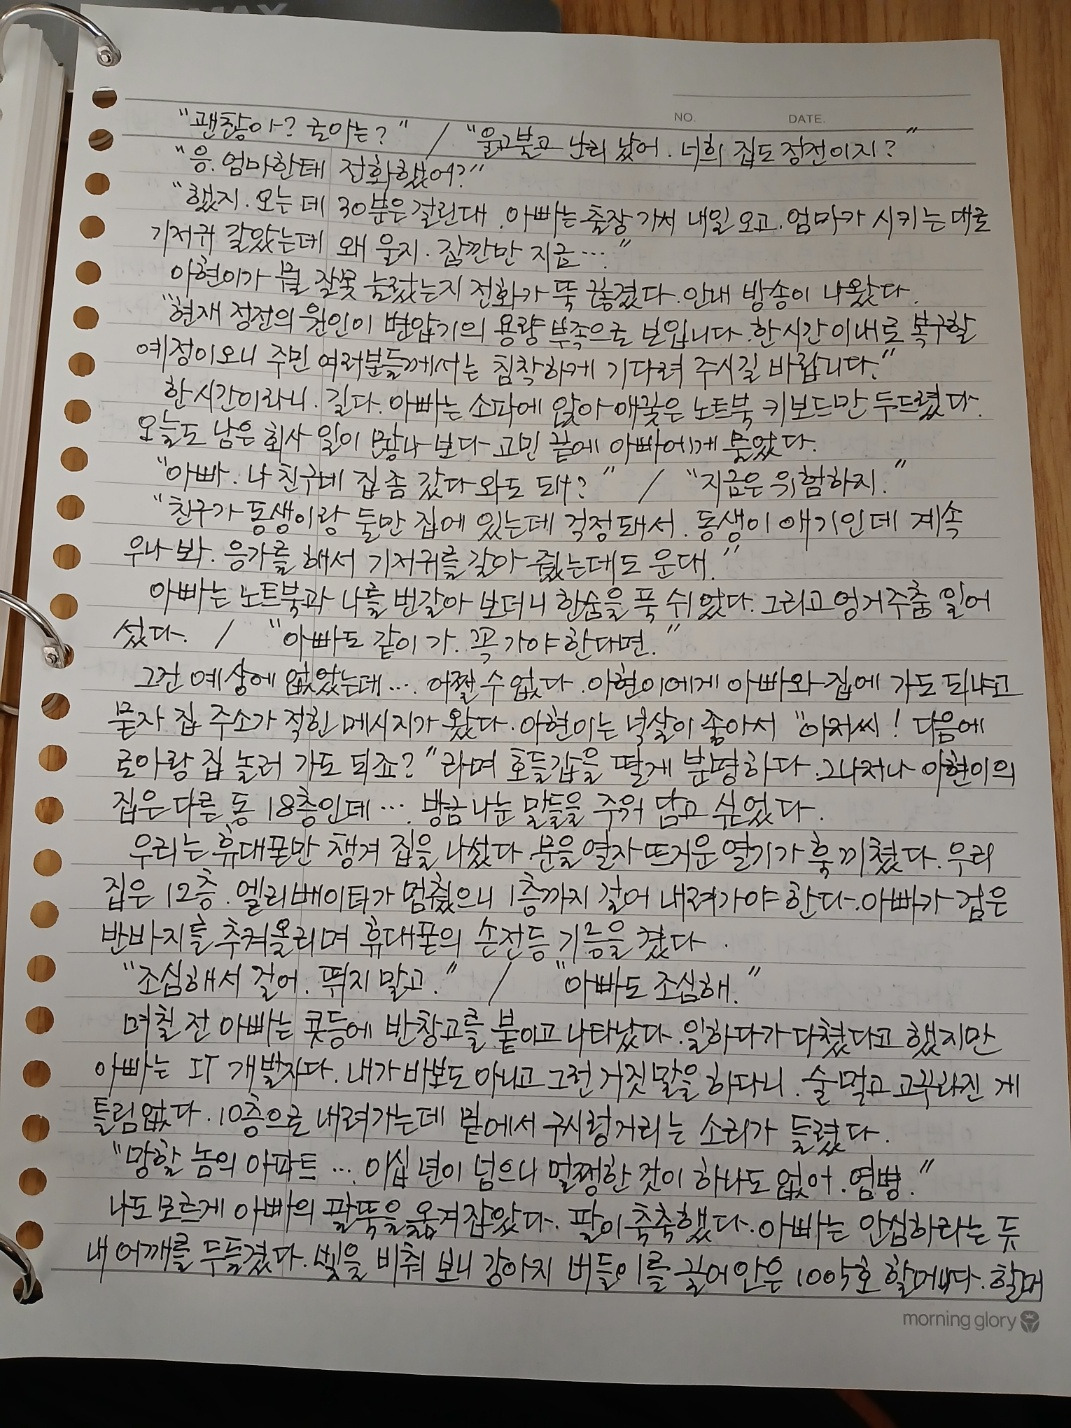 NO. DATE.
"괜찮아? 로아는?" / "울고불고 난리 났어. 너희 집도 정전이지?"
"응. 엄마한테 전화했어?"
"했지. 오는 데 30분은 걸린대. 아빠는 출장 가서 내일 오고. 엄마가 시키는 대로
기저귀 갈았는데 왜 울지. 잠깐만 지금…"
아현이가 뭘 잘못 눌렀는지 전화가 뚝 끊겼다. 안내 방송이 나왔다.
"현재 정전의 원인이 변압기의 용량 부족으로 보입니다. 한 시간 이내로 복구할
예정이오니 주민 여러분들께서는 침착하게 기다려 주시길 바랍니다."
한 시간이라니. 길다. 아빠는 소파에 앉아 애꿎은 노트북 키보드만 두드렸다.
오늘도 남은 회사 일이 많나 보다. 고민 끝에 아빠에게 물었다.
"아빠. 나 친구네 집 좀 갔다 와도 돼?" / "지금은 위험하지."
"친구가 동생이랑 둘만 집에 있는데 걱정돼서. 동생이 애기인데 계속
우나 봐. 응가를 해서 기저귀를 갈아 줬는데도 운대."
아빠는 노트북과 나를 번갈아 보더니 한숨을 푹 쉬었다. 그리고 엉거주춤 일어
섰다. / "아빠도 같이 가. 꼭 가야 한다면."
그건 예상에 없었는데… 어쩔 수 없다. 아현이에게 아빠와 집에 가도 되냐고
묻자 집 주소가 적힌 메시지가 왔다. 아현이는 넉살이 좋아서 "아저씨! 다음에
로아랑 집 놀러 가도 되죠?"라며 호들갑을 떨게 분명하다. 그나저나 아현이의
집은 다른 동 18층인데… 방금 나눈 말들을 주워 담고 싶었다.
우리는 휴대폰만 챙겨 집을 나섰다. 문을 열자 뜨거운 열기가 훅 끼쳤다. 우리
집은 12층. 엘리베이터가 멈췄으니 1층까지 걸어 내려가야 한다. 아빠가 검은
반바지를 추켜올리며 휴대폰의 손전등 기능을 켰다.
"조심해서 걸어. 뛰지 말고." / "아빠도 조심해."
며칠 전 아빠는 콧등에 반창고를 붙이고 나타났다. 일하다가 다쳤다고 했지만
아빠는 IT 개발자다. 내가 바보도 아니고 그런 거짓말을 하다니. 술 먹고 고꾸라진 게
틀림없다. 10층으로 내려가는데 밑에서 구시렁거리는 소리가 들렸다.
"망할 놈의 아파트… 이십 년이 넘으니 멀쩡한 것이 하나도 없어. 염병."
나도 모르게 아빠의 팔뚝을 옮겨잡았다. 팔이 축축했다. 아빠는 안심하라는 듯
내 어깨를 두들겼다. 빛을 비춰 보니 강아지 버들이를 끌어안은 1005호 할머니다. 할머
morning glory